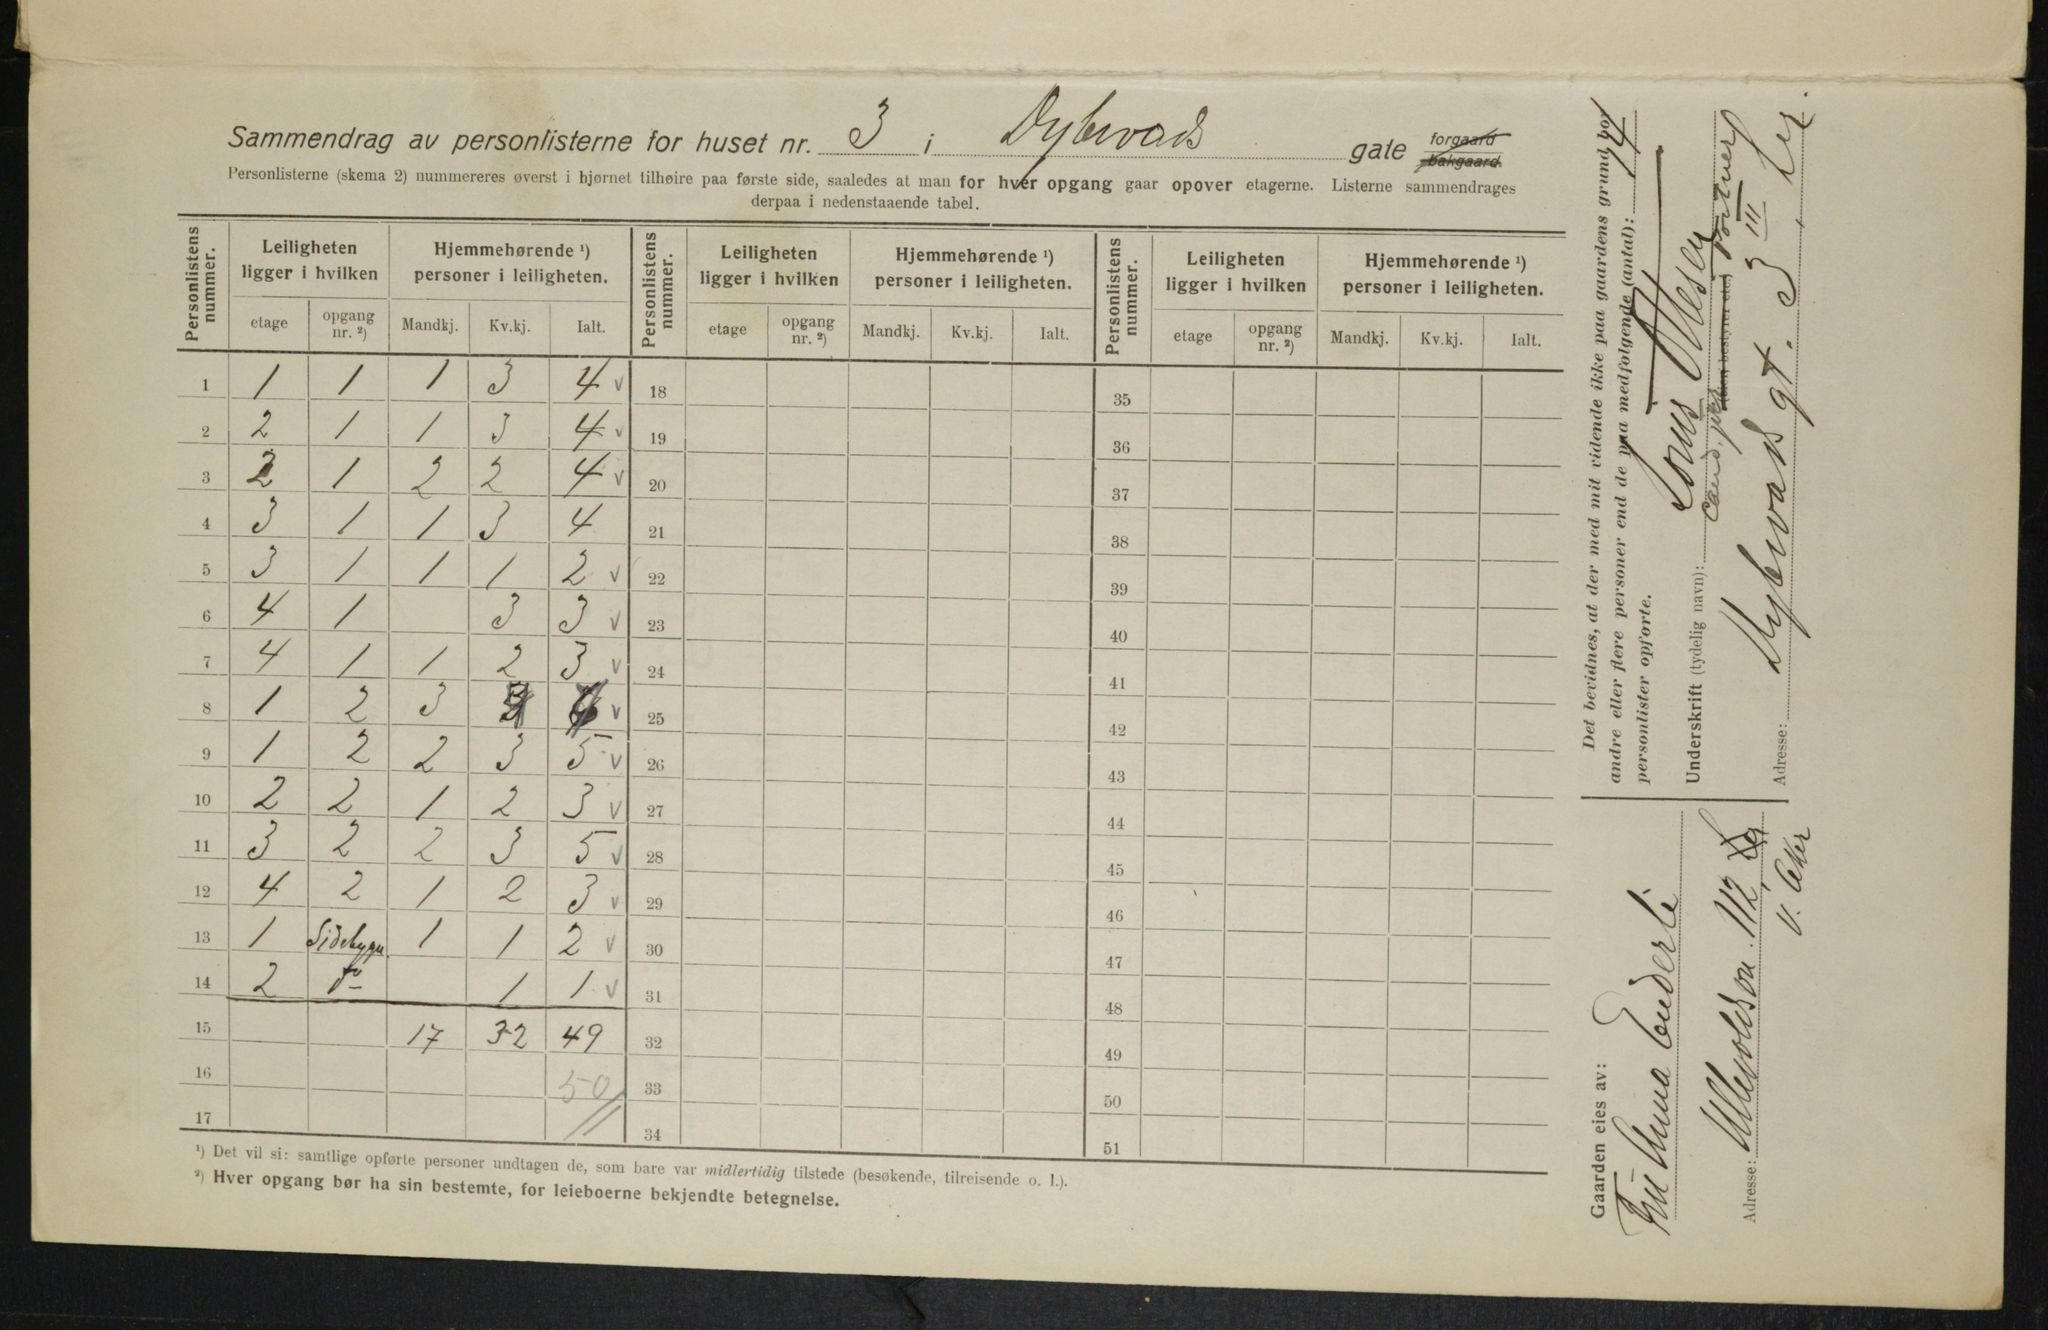 Sammendrag av personlisterne for huset nr. 3 i Dybwads gate forgaard bakgaard.
Personlisterne (skema 2) nummereres øverst i hjørnet tilhøire paa første side, saaledes at man for hver opgang gaar opover etagerne. Listerne sammendrages
derpaa i nedenstaaende tabel.
Personlistens nummer. Leiligheten ligger i hvilken Hjemmehørende ¹) personer i leiligheten. Personlistens nummer. Leiligheten ligger i hvilken Hjemmehørende ¹) personer i leiligheten. Personlistens nummer. Leiligheten ligger i hvilken Hjemmehørende ¹) personer i leiligheten.
etage opgang nr. ²) Mandkj. Kv.kj. Ialt. etage opgang nr. ²) Mandkj. Kv.kj. Ialt. etage opgang nr. ²) Mandkj. Kv.kj. Ialt.
1 1 1 1 3 4 v 18 35
2 2 1 1 3 4 v 19 36
3 2 1 2 2 4 v 20 37
4 3 1 1 3 4 21 38
5 3 1 1 1 2 v 22 39
6 4 1 3 3 v 23 40
7 4 1 1 2 3 v 24 41
8 1 2 3 v 25 42
9 1 2 2 3 5 v 26 43
10 2 2 1 2 3 v 27 44
11 3 2 2 3 5 v 28 45
12 4 2 1 2 3 v 29 46
13 1 Sidebygn. 1 1 2 v 30 47
14 2 do 1 1 v 31 48
15 17 32 49 32 49
16 50 33 50
17 34 51
¹) Det vil si: samtlige opførte personer undtagen de, som bare var midlertidig tilstede (besøkende, tilreisende o. l.).
²) Hver opgang bør ha sin bestemte, for leieboerne bekjendte betegnelse.
Det bevidnes, at der med mit vidende ikke paa gaardens grund bor
andre eller flere personer end de paa medfølgende (antal): 14
personlister opførte.
Underskrift (tydelig navn): Olesen
cand. (eier, bestyrer etc.)
Adresse: Dybwads gt. 3 III
Gaarden eies av:
Anna Enderle
Adresse: Ullevoldsvn. 112,
V. Aker